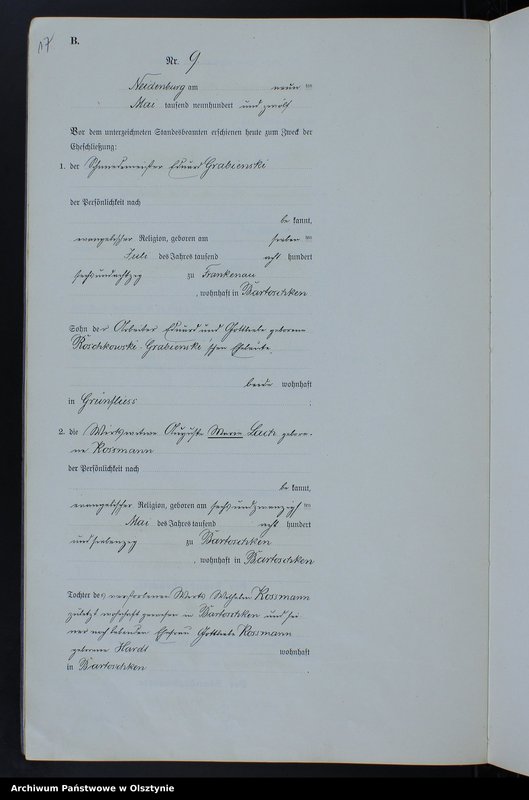 17
B.
Nr. 9
Neidenburg am neun ten
Mai tausend neunhundert und zwölf
Vor dem unterzeichneten Standesbeamten erschienen heute zum Zweck der
Eheschließung:
1. der Schmiedemeister Eduard Grabienski
der Persönlichkeit nach
be kannt,
evangelischer Religion, geboren am sieben ten
Juli des Jahres tausend acht hundert
sechsundachtzig zu Frankenau
, wohnhaft in Bartoschken
Sohn der Arbeiter Eduard und Gottliebe geborene
Roschkowski-Grabienski'schen Eheleute,
beide wohnhaft
in Grünfliess
2. die Auguste Marie gebore-
ne Rossmann
der Persönlichkeit nach
be kannt,
evangelischer Religion, geboren am sechsundzwanzigs ten
Mai des Jahres tausend acht hundert
undsiebenzig zu Bartoschken
, wohnhaft in Bartoschken
Tochter des verstorbenen Wirts Wilhelm Rossmann
zuletzt wohnhaft gewesen in Bartoschken und sei-
ner noch lebenden Ehefrau Gottliebe Rossmann
geborene Hardt wohnhaft
in Bartoschken
Archiwum Państwowe w Olsztynie